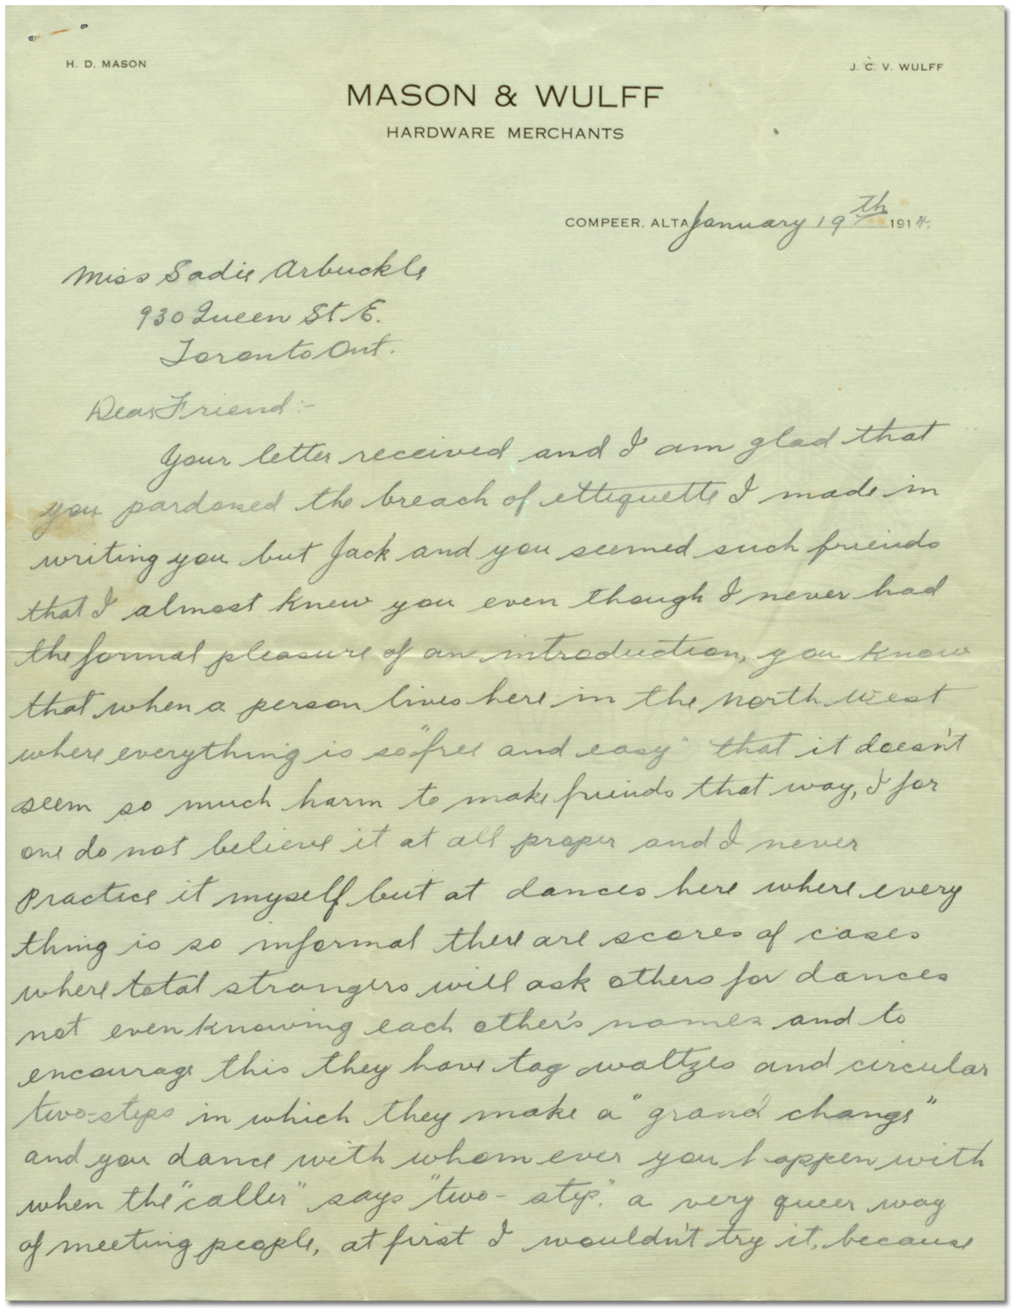 H. D. MASON
J. C. V. WULFF
MASON & WULFF
HARDWARE MERCHANTS
COMPEER, ALTA January 19th 1914.
Miss Sadie Arbuckle
930 Queen St E.
Toronto Ont.
Dear Friend:-
Your letter received and I am glad that
you pardoned the breach of ettiquette I made in
writing you but Jack and you seemed such friends
that I almost knew you even though I never had
the formal pleasure of an introduction, you know
that when a person lives here in the North West
where everything is so "free and easy" that it doesn't
seem so much harm to make friends that way, I for
one do not believe it at all proper and I never
Practice it myself but at dances here where every
thing is so informal there are scores of cases
where total strangers will ask others for dances
not even knowing each other's names and to
encourage this they have tag waltzes and circular
two-steps in which they make a "grand change"
and you dance with whom ever you happen with
when the "caller" says "two-step." a very queer way
of meeting people, at first I wouldn't try it, because